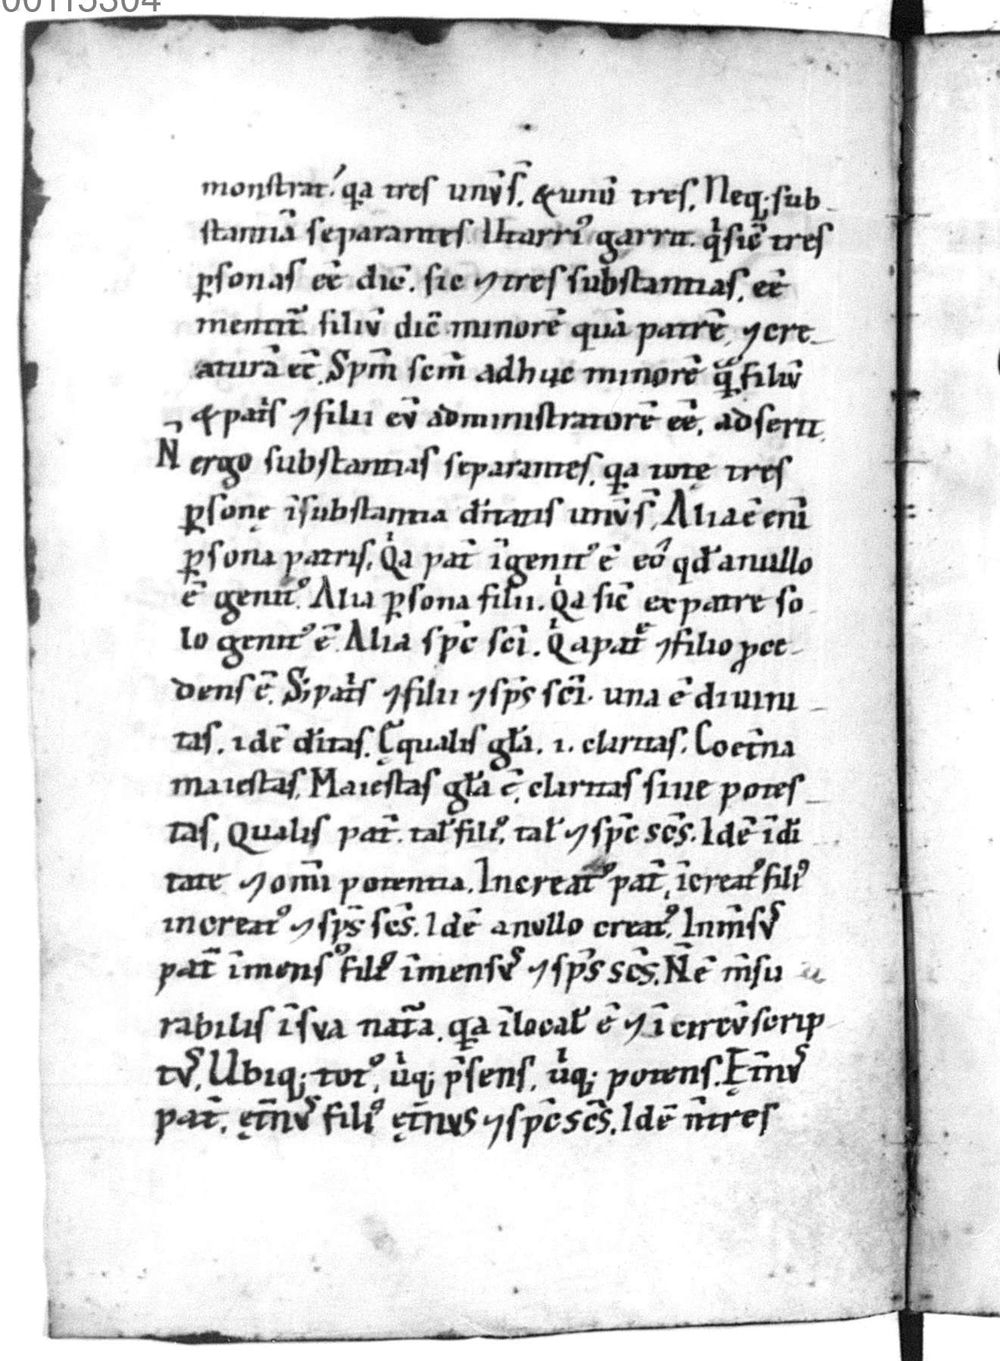 monstrat. q̇a tres unꝰ s̄. & unū tres. Neq; sub
stantiā separantes. Ut arriꝰ garrit. q̇ sic̄ tres
ꝑsonas eē dic̄. sic ⁊ tres substantias. eē
mentit̄. filiū dic̄ minorē quā patrē, ⁊ cre
aturā eē. Spm̄ scm̄ adhuc minorē q̄ filiū
& pat̄s ⁊ filii eū administratorē eē, adserit.
N̄ ergo substantias separantes. q̇a iste tres
ꝑsonę īsubstantia dītatis unꝰ s̄. Alia ē enī
ꝑsona patris. Q̇a pat̄ īgenitꝰ ē eo qđ a nullo
ē genitꝰ. Alia ꝑsona filii. Q̇a sic̄ ex patre so
lo genitꝰ ē. Alia spc̄ sci̅. Q̇a a pat̄ ⁊ filio ꝓce
dens ē. S; pat̄s ⁊ filii ⁊ sps̄ sci̅. una ē diuini
tas. idē dītas. Ęqualis gła. .i. claritas. Coet̄na
maiestas. Maiestas gła ē, claritas siue potes
tas. Qualis pat̄. tał filiꝰ. tał ⁊ spc̄ sc̄s. Idē īdi
tate ⁊ omī potentia. Increatꝰ pat̄. īcreatꝰ filiꝰ
increatꝰ ⁊ sps̄ sc̄s. Idē a nullo creatꝰ. Inm̄sꝰ
pat̄ īmensꝰ filꝰ īmensꝰ ⁊ sps̄ sc̄s. N̄ ē m̄su
rabilis īsua nat̄a. q̇a īlocał ē ⁊ īcircūscrip
tꝰ. Ubiq; totꝰ, u̇q; p̄sens. u̇q; potens. Ęt̄nꝰ
pat̄. ęt̄nꝰ filiꝰ ęt̄nus ⁊ spc̄ sc̄s. Idē n̄ tres